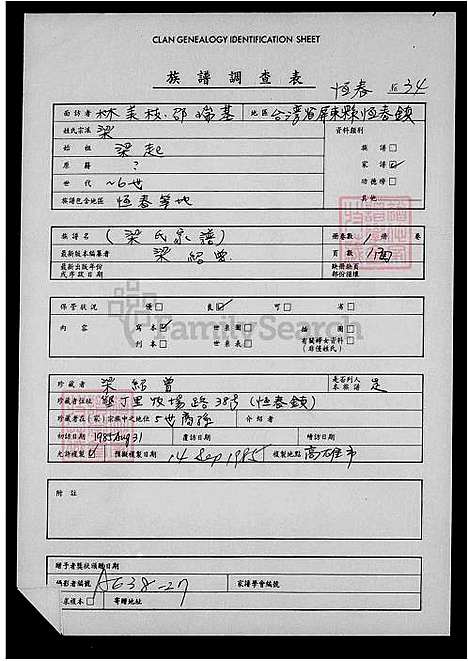 CLAN GENEALOGY IDENTIFICATION SHEET
族譜調查表
恒春 34
面訪者 林美枝.邵瑞基 地區 台灣省屏東縣恒春鎮
姓氏宗派 梁 資料類別
始祖 梁起 族譜□
原籍 ? 家譜☑
世代 ~6世 功德榜□
族譜包含地區 恒春等地 其他
族譜名 (梁氏家譜) 冊卷數 1 冊 卷
最新版本編纂者 梁紹曾. 頁數 1面
最新出版年份或序跋日期 缺冊缺頁部份種類
保管狀況 優□ 良☑ 可□ 劣□
內容 寫本☑ 世系圖□ 插圖□
刊本□ 世系表□ 有關婦女資料(非僅姓氏)□
FamilySearch
珍藏者 梁紹曾 是否列入本族譜 是
珍藏者住址 墾丁里牧場路38号(恒春鎮)
珍藏者在(家)宗族中之地位 5世裔孫 介紹者
初訪日期 1985 Aug 31 覆訪日期 續訪日期
允許複製 預擬複製日期 14 Sep 1985 複製地點 高雄市
附註
贈予者獎狀頒贈日期
攝影者編號 A638-27 家譜學會編號
求複本□ 寄贈地址